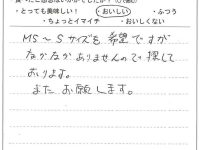 ・とっても美味しい！ ・おいしい ・ふつう
・ちょっとイマイチ ・おいしくない
MS～Sサイズを希望ですが
なかなかありませんので探して
おります。
またお願します。